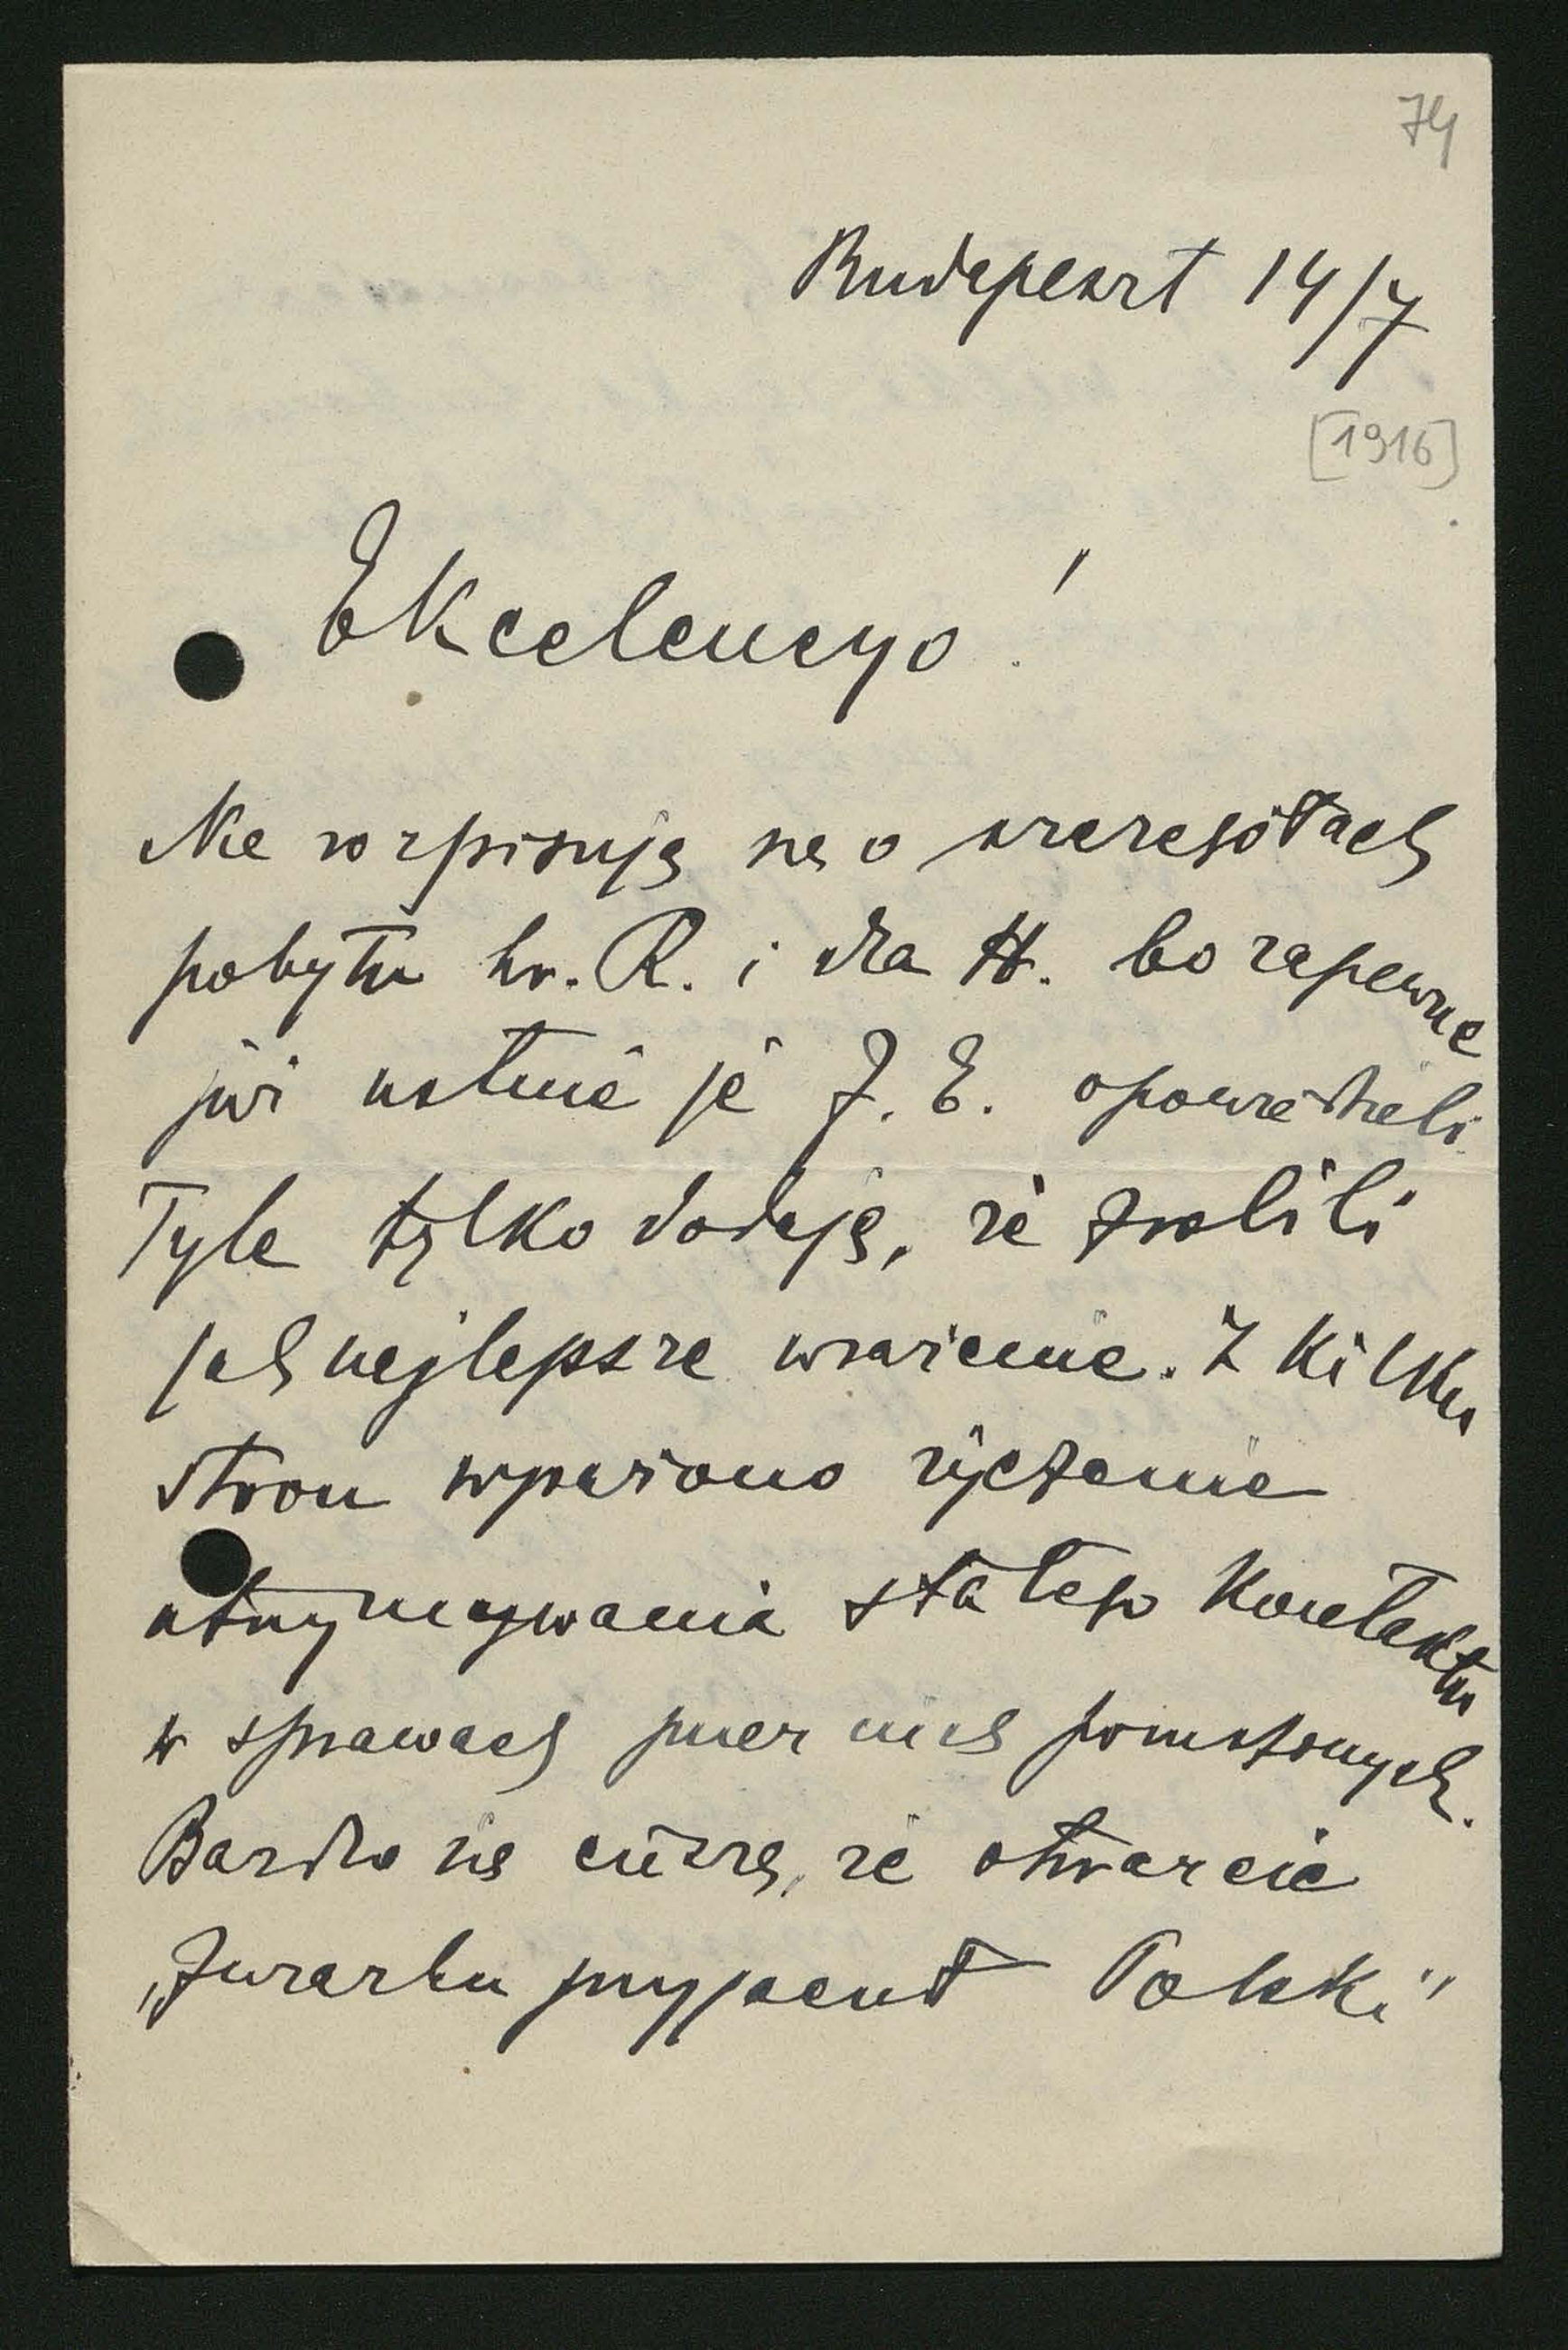 74
Budapeszt 14/7
[1916]
Ekcelencyo!
Nie rozpisuję się o szczegółach
pobytu hr. R. i dra H. bo zapewne
już ustnie je J. E. opowiedzieli.
Tyle tylko dodaję, że zrobili
jak najlepsze wrażenie. Z kilku
stron wyrażono życzenie
utrzymywania stałego kontaktu
w sprawach przez nich poruszonych.
Bardzo się cieszę, że otwarcie
„Związku przyjaciół Polski"